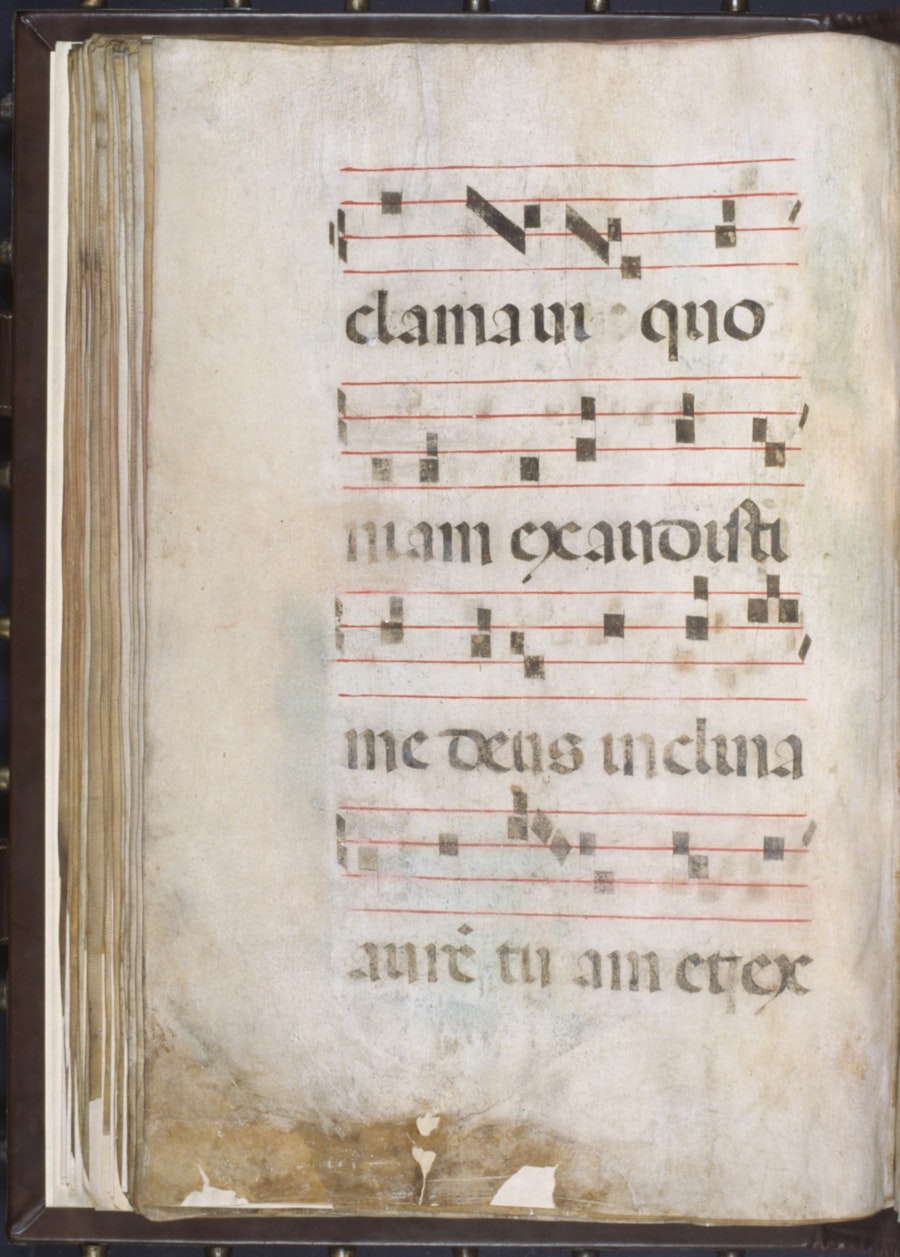 clamaui quo
niam exaudisti
me deus inclina
aurē tuam et ex